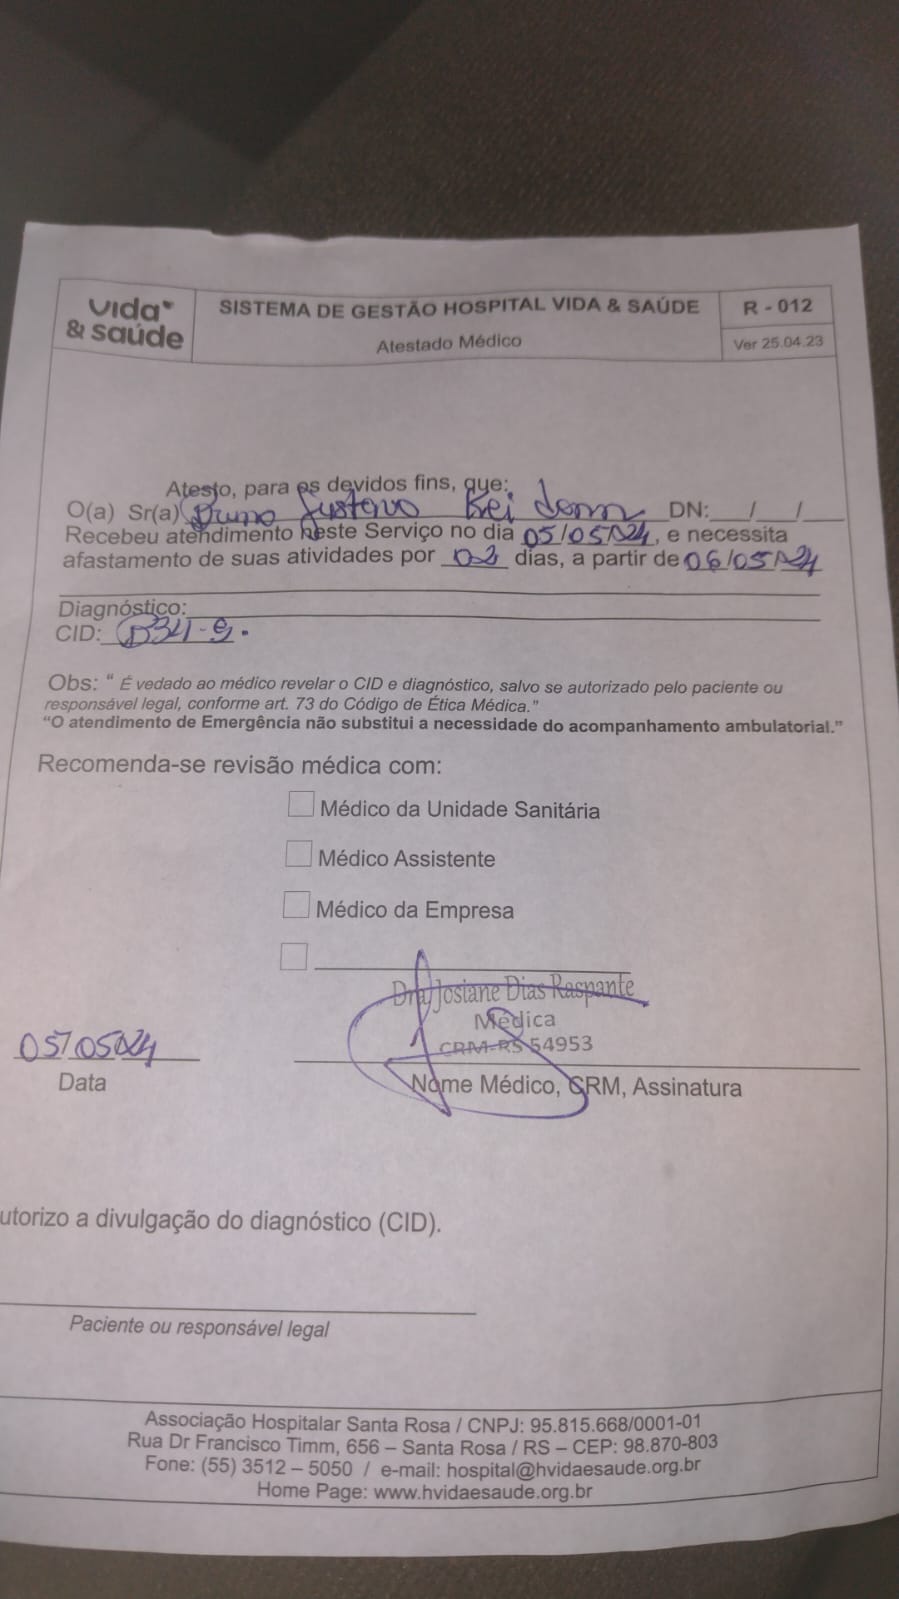 vida & saúde
SISTEMA DE GESTÃO HOSPITAL VIDA & SAÚDE
Atestado Médico
R - 012
Ver 25.04.23
Atesto, para os devidos fins, que:
O(a) Sr(a) Gustavo DN: __/__/__
Recebeu atendimento neste Serviço no dia 05/05/24, e necessita
afastamento de suas atividades por 02 dias, a partir de 06/05/24
Diagnóstico:
CID: B34-9.
Obs: " É vedado ao médico revelar o CID e diagnóstico, salvo se autorizado pelo paciente ou
responsável legal, conforme art. 73 do Código de Ética Médica."
"O atendimento de Emergência não substitui a necessidade do acompanhamento ambulatorial."
Recomenda-se revisão médica com:
Médico da Unidade Sanitária
Médico Assistente
Médico da Empresa
Dra Josiane Dias Raspante
Médica
CRM-RS 54953
05/05/24
Data
Nome Médico, CRM, Assinatura
utorizo a divulgação do diagnóstico (CID).
Paciente ou responsável legal
Associação Hospitalar Santa Rosa / CNPJ: 95.815.668/0001-01
Rua Dr Francisco Timm, 656 – Santa Rosa / RS – CEP: 98.870-803
Fone: (55) 3512 – 5050 / e-mail: hospital@hvidaesaude.org.br
Home Page: www.hvidaesaude.org.br